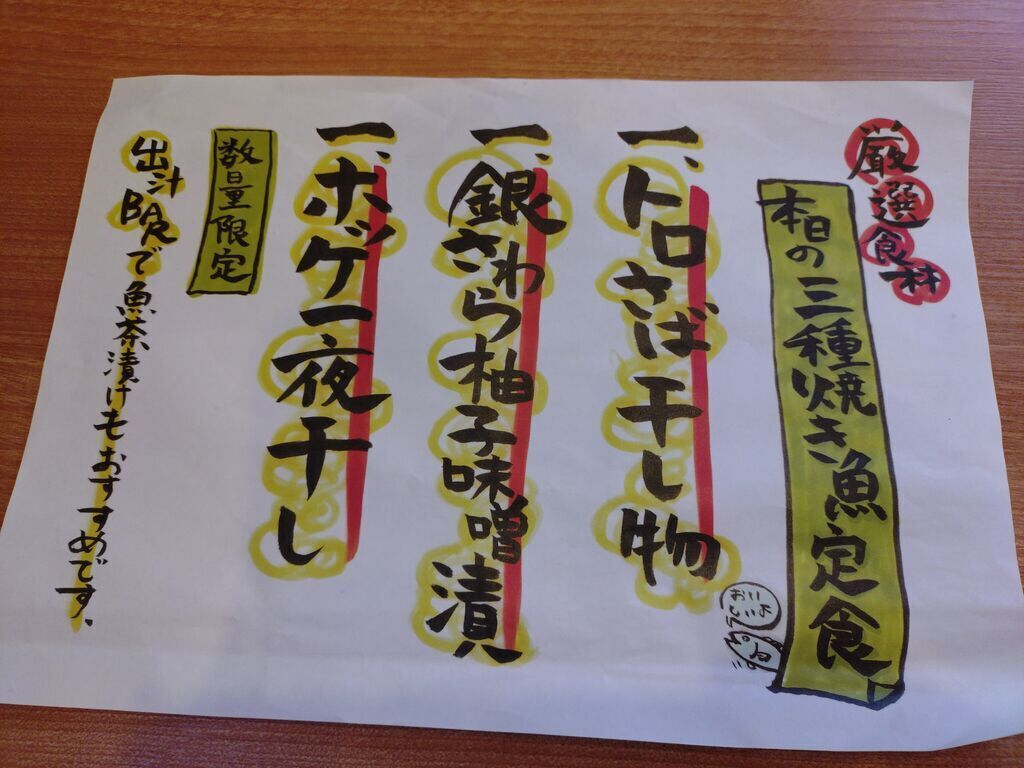 厳選食材
本日の三種焼き魚定食
おいしいよ
一、トロさば干し物
一、銀さわら柚子味噌漬
一、ホッケ一夜干し
数量限定
出汁BARで魚茶漬けもおすすめです。